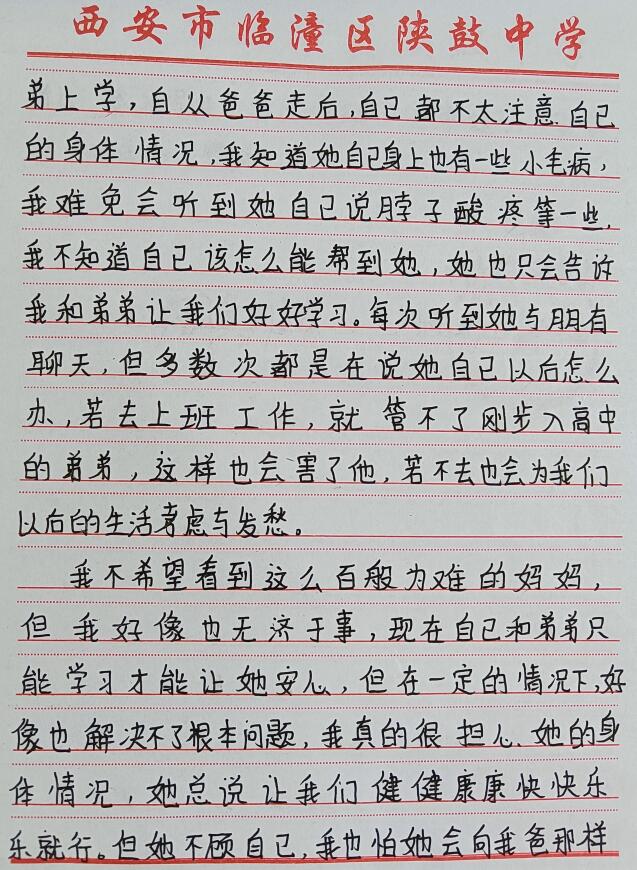 西安市临潼区陕鼓中学
弟上学，自从爸爸走后，自己都不太注意自己
的身体情况，我知道她自己身上也有一些小毛病，
我难免会听到她自己说脖子酸疼等一些，
我不知道自己该怎么能帮到她，她也只会告诉
我和弟弟让我们好好学习。每次听到她与朋有
聊天，但多数次都是在说她自己以后怎么
办，若去上班工作，就管不了刚步入高中
的弟弟，这样也会害了他，若不去也会为我们
以后的生活考虑与发愁。
我不希望看到这么百般为难的妈妈，
但我好像也无济于事，现在自己和弟弟只
能学习才能让她安心，但在一定的情况下，好
像也解决不了根本问题，我真的很担心她的身
体情况，她总说让我们健健康康快快乐
乐就行。但她不顾自己，我也怕她会向我爸那样